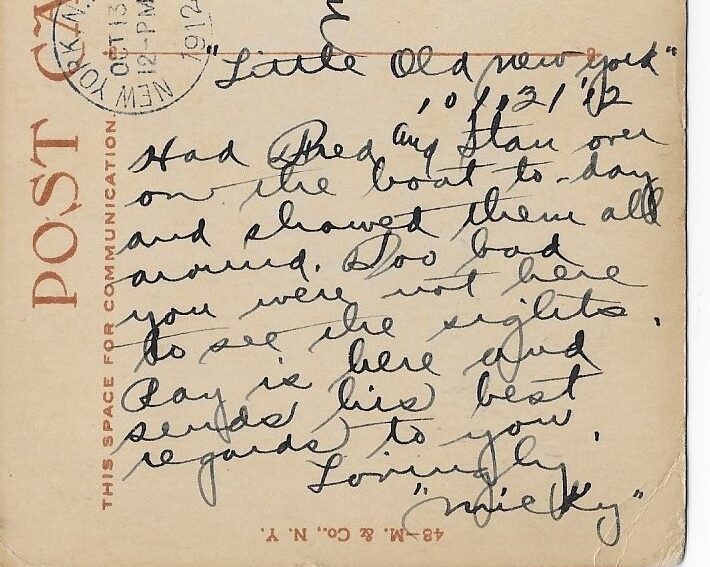 POST CA
THIS SPACE FOR COMMUNICATION.
NEW YORK, N.
OCT 13
12-PM
1912
"Little Old New York"
10/13/12
Had Fred and Stan over
on the boat to-day
and showed them all
around. Too bad
you were not here
to see the sights.
Ray is here and
sends his best
regards to you.
Lovingly
"Micky"
48-M. & Co., N. Y.